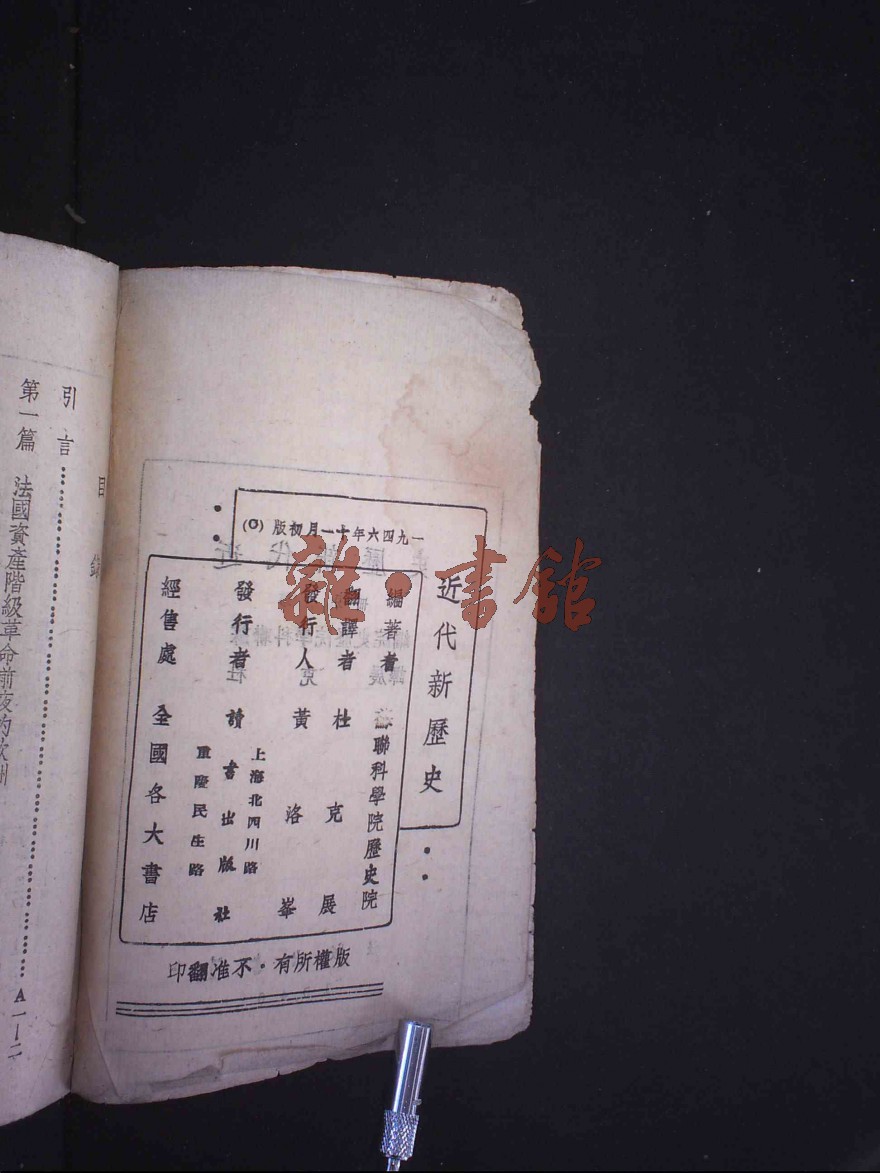 一九四六年十一月初版(0)
近代新歷史
編著者 蘇聯科學院歷史院
翻譯者 杜克展
發行人 黃洛峯
發行者 讀書出版社
上海北四川路
重慶民生路
經售處 全國各大書店
版權所有·不准翻印
目錄
引言……A一—二
第一篇 法國資產階級革命前夜的歐洲
雜·書館